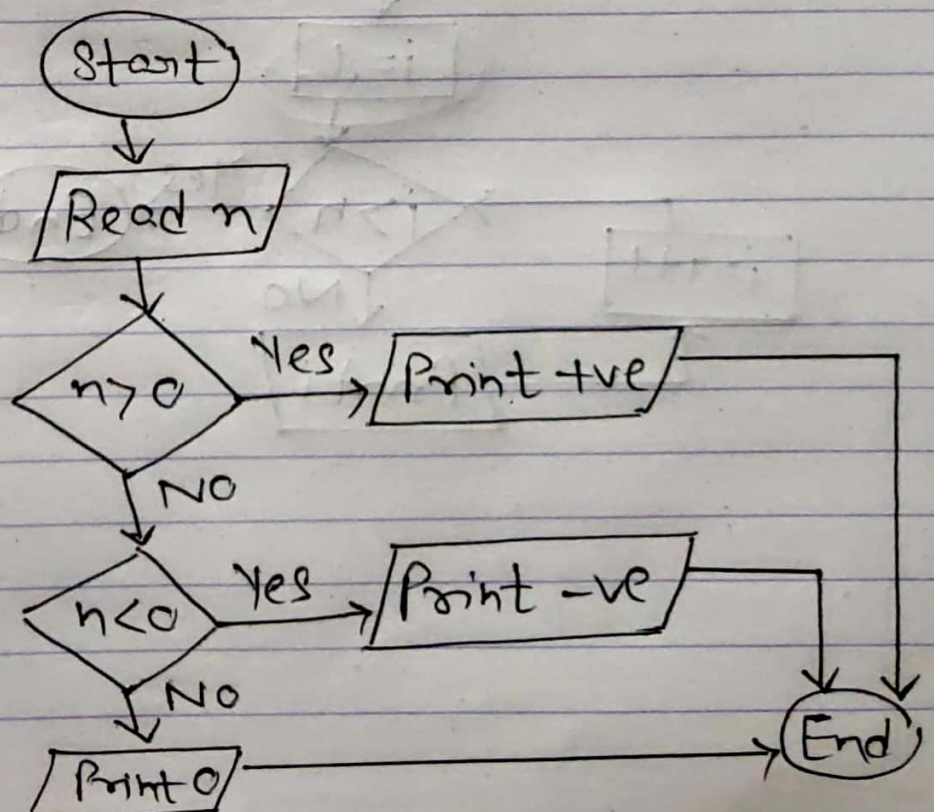 Start
Read n
n>0
Yes
Print +ve
NO
n<0
Yes
Print -ve
NO
Print 0
End